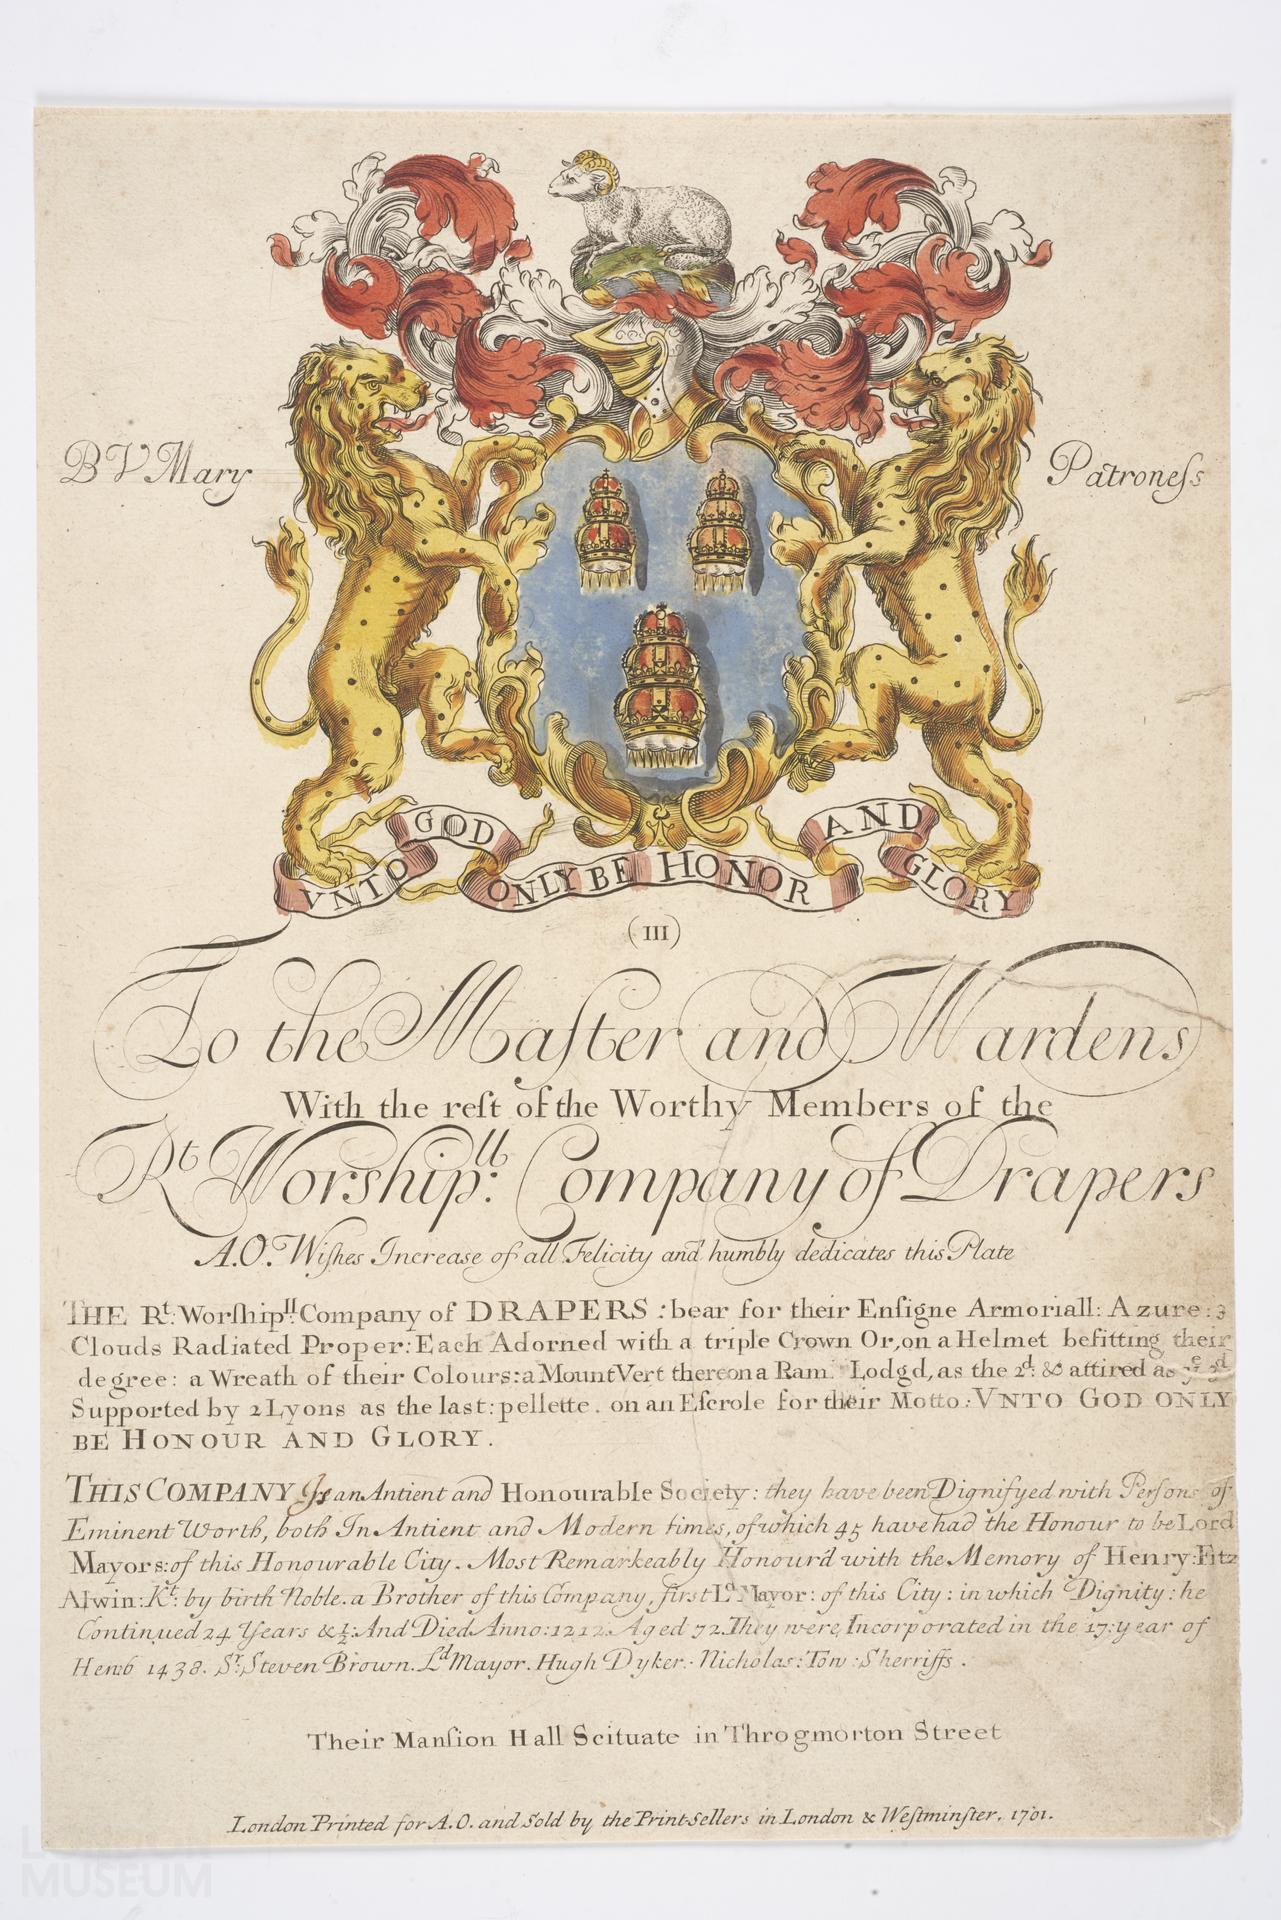 B V Mary
Patroneſs
VNTO GOD ONLY BE HONOR AND GLORY
(III)
To the Maſter and Wardens
With the reſt of the Worthy Members of the
Rt Worship:ll Company of Drapers
A.O. Wiſhes Increase of all Felicity and humbly dedicates this Plate
THE Rt: Worſhipll: Company of DRAPERS : bear for their Enſigne Armoriall: Azure: 3
Clouds Radiated Proper: Each Adorned with a triple Crown Or, on a Helmet befitting their
degree: a Wreath of their Colours: a Mount Vert thereon a Ram. Lodgd, as the 2d: & attired as
Supported by 2 Lyons as the last: pellette. on an Eſcrole for their Motto: VNTO GOD ONLY
BE HONOUR AND GLORY.
THIS COMPANY Is an Antient and Honourable Society: they have been Dignifyed with Perſons of
Eminent Worth, both In Antient and Modern times, of which 45 have had the Honour to be Lord
Mayors: of this Honourable City. Most Remarkeably Honour'd with the Memory of Henry: Fitz
Alwin: Kt: by birth Noble. a Brother of this Company, first Ld Mayor: of this City: in which Dignity: he
Continued 24 Years & ½: And Died Anno: 1212. Aged 72. They were Incorporated in the 17: year of
Hen: 6 1438. Sr. Steven Brown. Ld Mayor. Hugh Dyker. Nicholas: Tow: Sherriffs.
Their Manſion Hall Scituate in Throgmorton Street
London Printed for A.O. and Sold by the Print-Sellers in London & Weſtminſter. 1701.
LONDON
MUSEUM